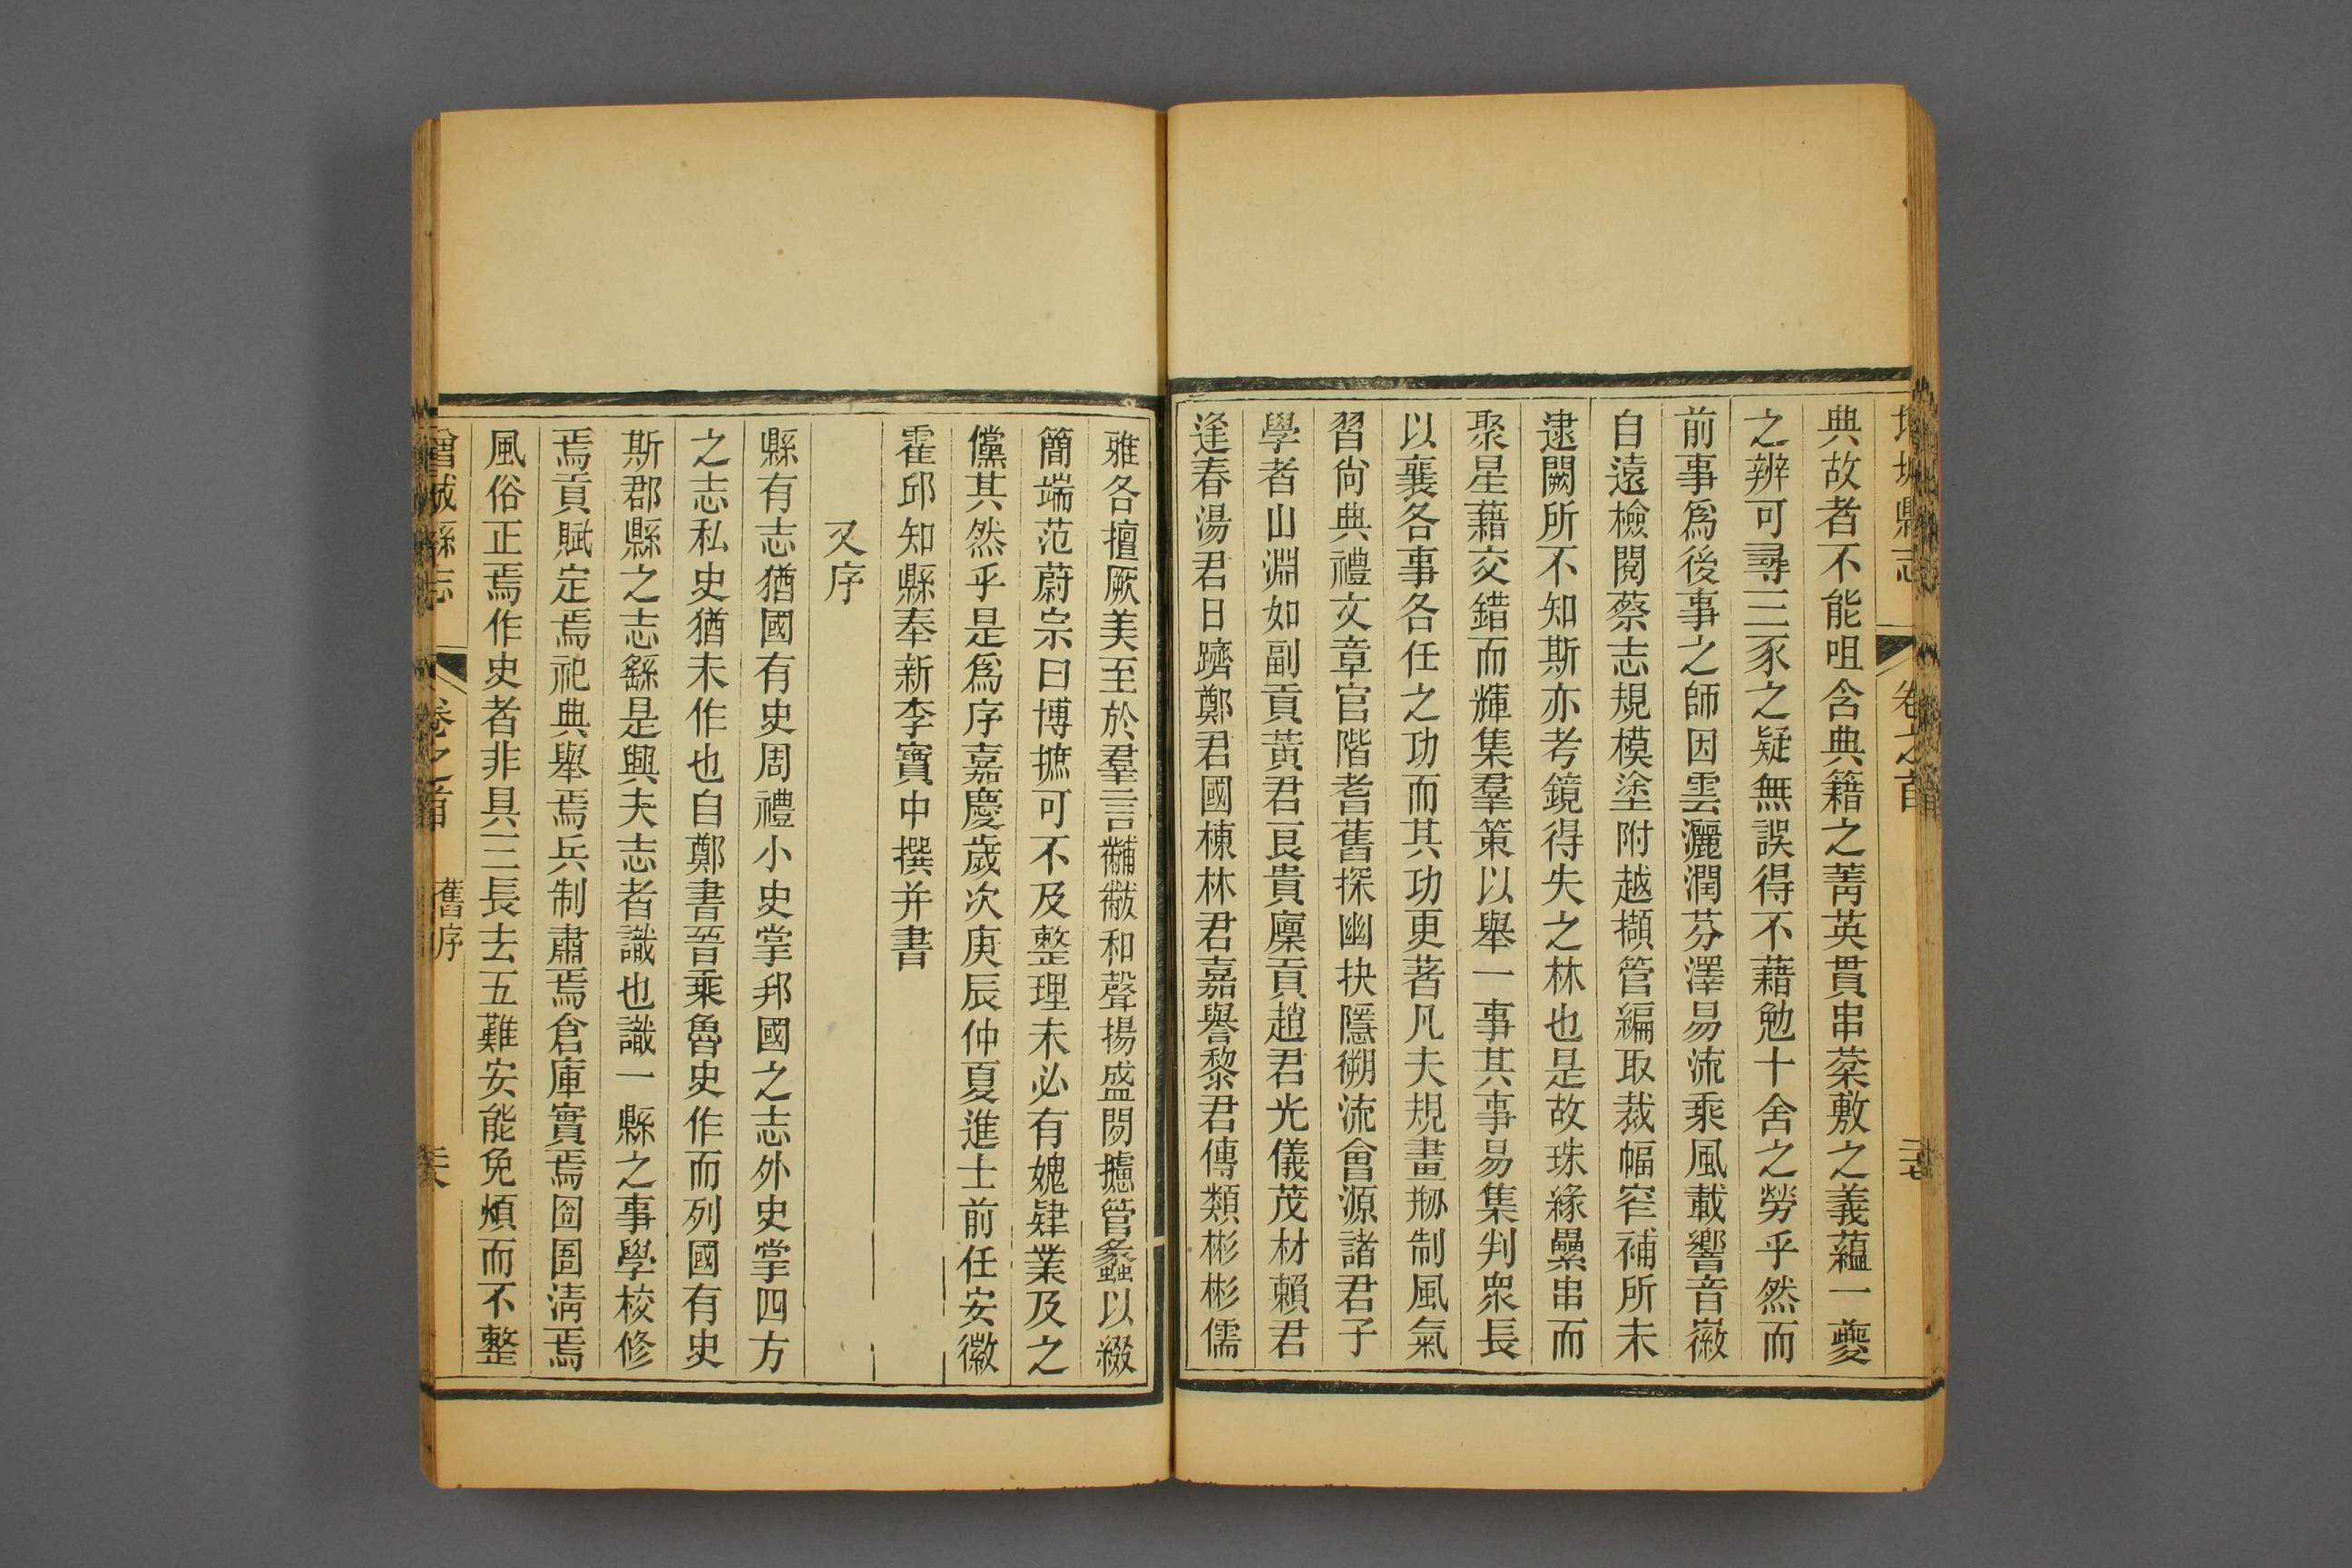 增城縣志
卷之首
二十七
典故者不能咀含典籍之菁英貫串棻敷之義蘊一夔
之辨可尋三豕之疑無誤得不藉勉十舍之勞乎然而
前事爲後事之師因雲灑潤芬澤易流乘風載響音徽
自遠檢閱蔡志規模塗附越擷管編取裁幅窄補所未
逮闕所不知斯亦考鏡得失之林也是故珠緣纍串而
聚星藉交錯而輝集羣策以舉一事其事易集判衆長
以襄各事各任之功而其功更著凡夫規畫刱制風氣
習尙典禮文章官階耆舊探幽抉隱溯流會源諸君子
學者山淵如副貢黃君艮貴廩貢趙君光儀茂材賴君
逢春湯君日躋鄭君國棟林君嘉譽黎君傳類彬彬儒
雅各擅厥美至於羣言黼黻和聲揚盛閎攄管蠡以綴
簡端范蔚宗曰博摭可不及整理未必有媿肄業及之
儻其然乎是爲序嘉慶歲次庚辰仲夏進士前任安徽
霍邱知縣奉新李寶中撰并書
又序
縣有志猶國有史周禮小史掌邦國之志外史掌四方
之志私史猶未作也自鄭書晉乘魯史作而列國有史
斯郡縣之志繇是興夫志者識也識一縣之事學校修
焉貢賦定焉祀典舉焉兵制肅焉倉庫實焉囹圄淸焉
風俗正焉作史者非具三長去五難安能免煩而不整
增城縣志
卷之首
舊序
二十八